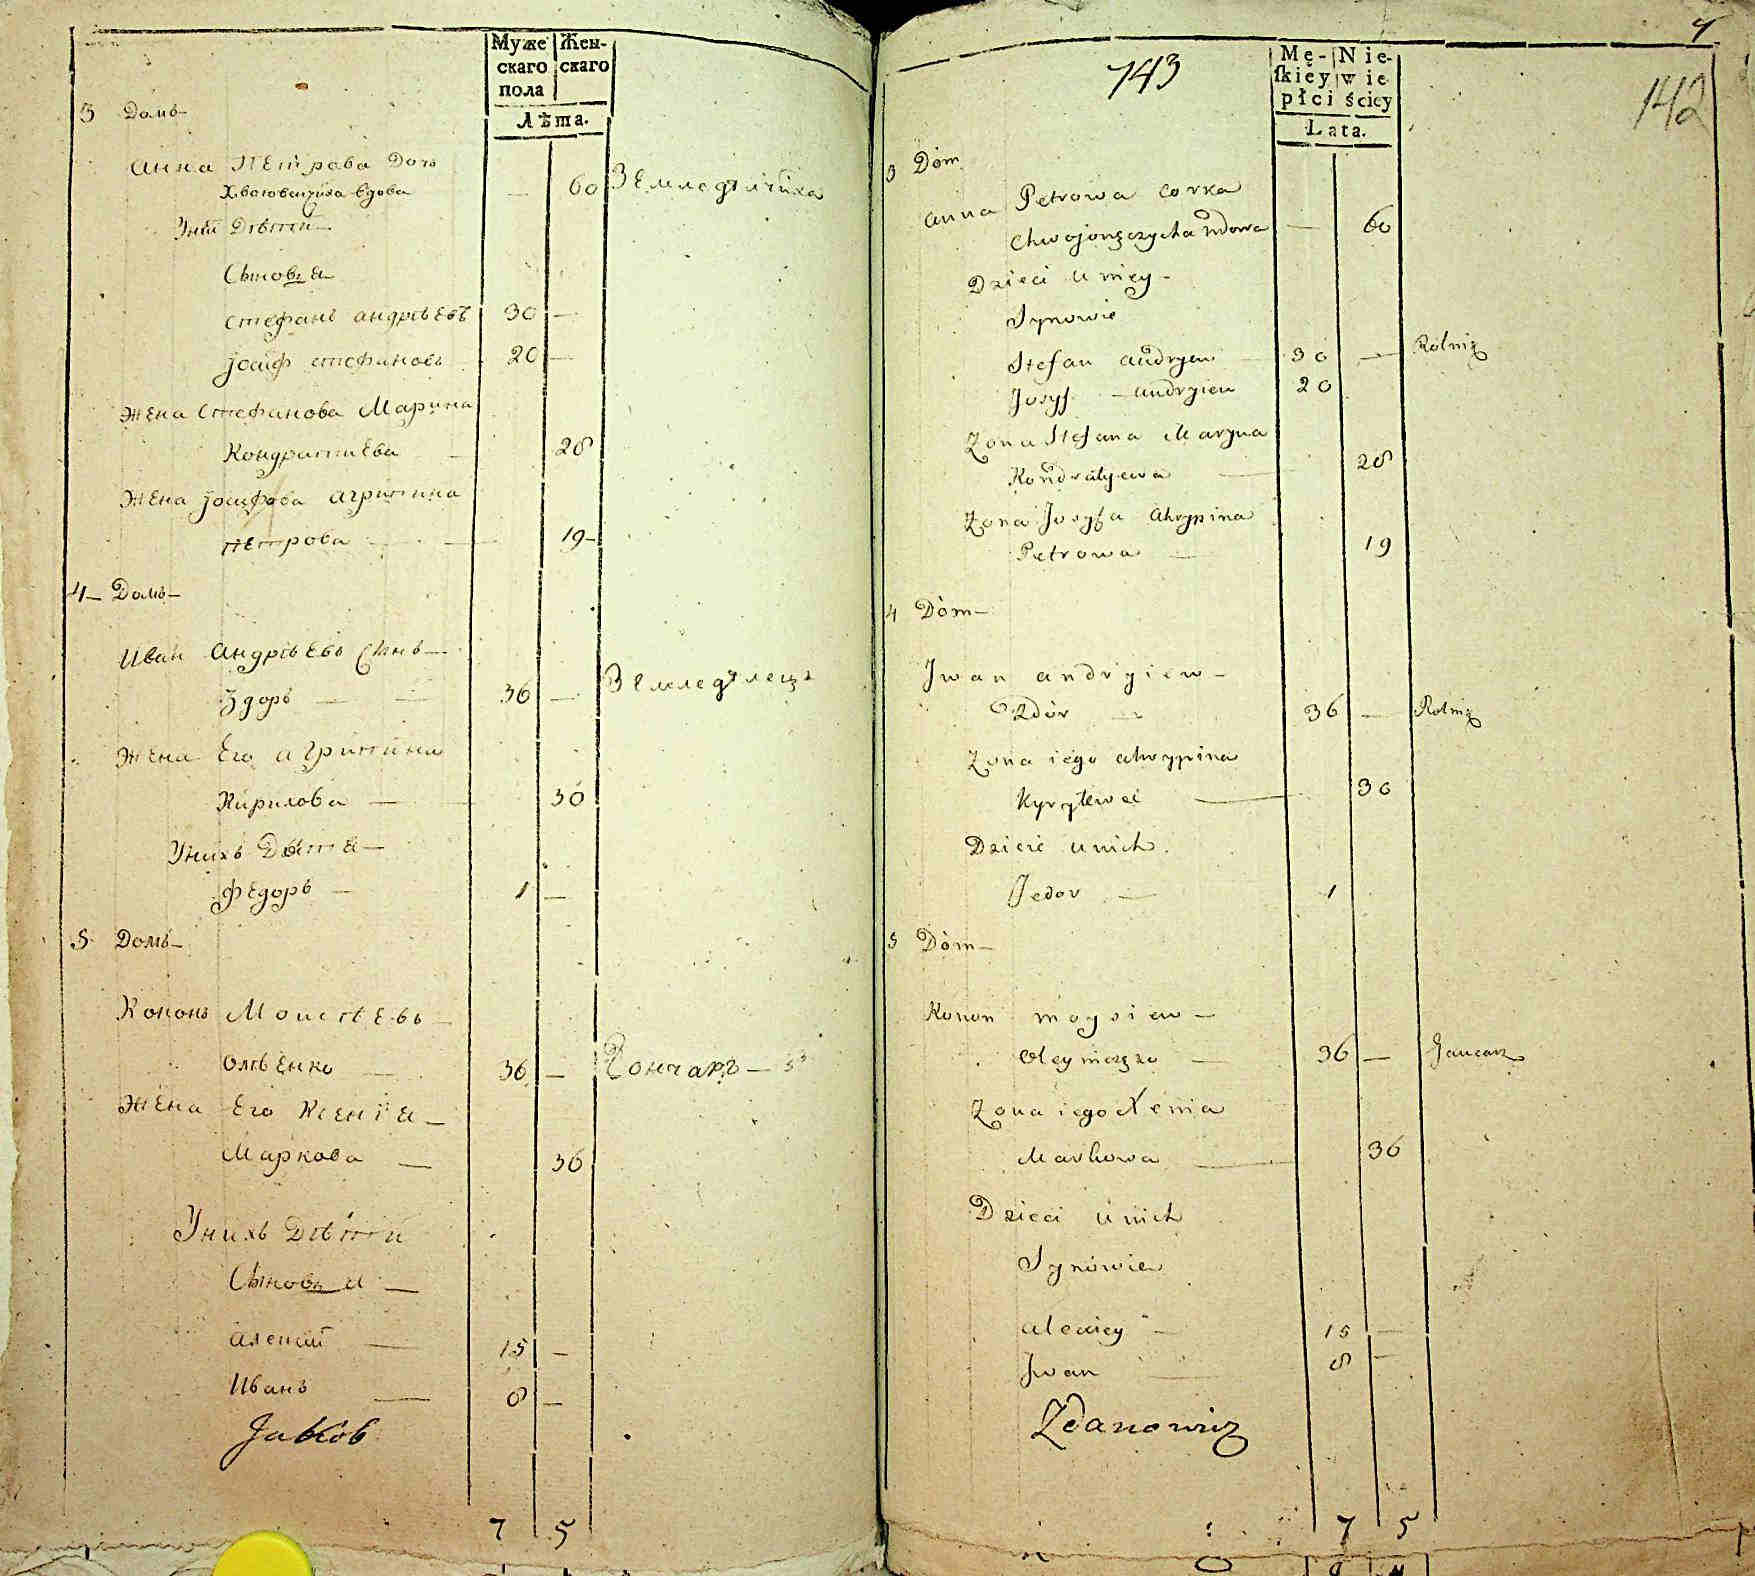 Муже
скаго
пола
Жен-
скаго
Лѣта.
3 Домъ
Анна Петрова Доч
вдова — 60 Земледѣлчиха
У ней Дѣти
Сыновья
Стефанъ Андрѣевъ 30 —
Іосиф Стефановъ 20 —
Жена Стефанова Марина
Кондратиева — 28
Жена Іосифова Агрипина
Петрова — 19
4 Домъ
Иван Андрѣевъ Сынъ
Здоръ — 36 — Земледѣлецъ
Жена Его Агрипина
Кирилова — 30
У нихъ Дѣти
Федоръ — 1 —
5 Домъ
Кононъ Моисѣевъ
36 — Гончаръ
Жена Его Ксенія
Маркова — 36
У нихъ Дѣти
Сыновья
Алексій — 15 —
Иванъ — 8 —
7 5
4
743
142
Mę-
skiey
płci
Nie-
wie
ściey
Lata.
3 Dóm
Anna Petrowa Corka
wdowa — 60
Dzieci u niey
Synowie
Stefan Andryiew 30 — Rolnik
Josyf Andryiew 20
Zona Stefana Maryna
Kondratyewa — 28
Zona Josyfa Ahrypina
Petrowa — 19
4 Dóm
Iwan Andryiew
Zdór — 36 — Rolnik
Zona iego Ahrypina
— 30
Dzieci u nich
Fedor — 1
5 Dóm
Konon Moysiew
36 — Gancarz
Zona iego Xenia
Markowa — 36
Dzieci u nich
Synowie
Alexiey — 15 —
Iwan — 8 —
Zdanowicz
7 5